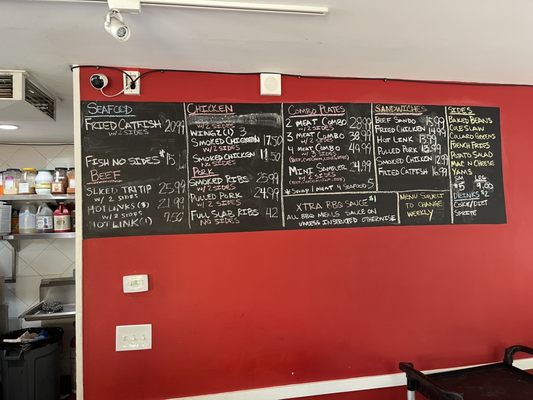 SEAFOOD
FRIED CATFISH 20.99
W/2 SIDES
FISH NO SIDES $15
BEEF
SLICED TRI TIP 25.99
W/ 2 SIDES
HOT LINKS (3) 21.99
W/ 2 SIDES
HOT LINK (1) 7.50
CHICKEN
W/ 2 SIDES
WINGZ (3) 3
SMOKED CHICKEN 17.50
W/ 2 SIDES
SMOKED CHICKEN 11.50
NO SIDES
PORK
SMOKED RIBS 25.99
W/ 2 SIDES
PULLED PORK 24.99
W/ 2 SIDES
FULL SLAB RIBS 42
NO SIDES
COMBO PLATES
2 MEAT COMBO 28.99
W/ 2 SIDES
3 MEAT COMBO 38.99
W/ 2 SIDES
4 MEAT COMBO 49.99
MINI SAMPLER 24.99
W/ 2 SIDES
4 MEAT SEAFOOD 5
XTRA BBQ SAUCE $1
ALL BBQ MEALS SAUCE ON
UNLESS INSTRUCTED OTHERWISE
SANDWICHES
BEEF SANDO 15.99
FRIED CHICKEN 14.99
HOT LINK 13.99
PULLED PORK 13.99
SMOKED CHICKEN 12.99
FRIED CATFISH 16.99
MENU SUBJECT
TO CHANGE
WEEKLY
SIDES
BAKED BEANS
COLE SLAW
COLLARD GREENS
FRENCH FRIES
POTATO SALAD
MAC N CHEESE
YAMS
SM LRG
$5 9.00
DRINKS $2
COKE/DIET
SPRITE